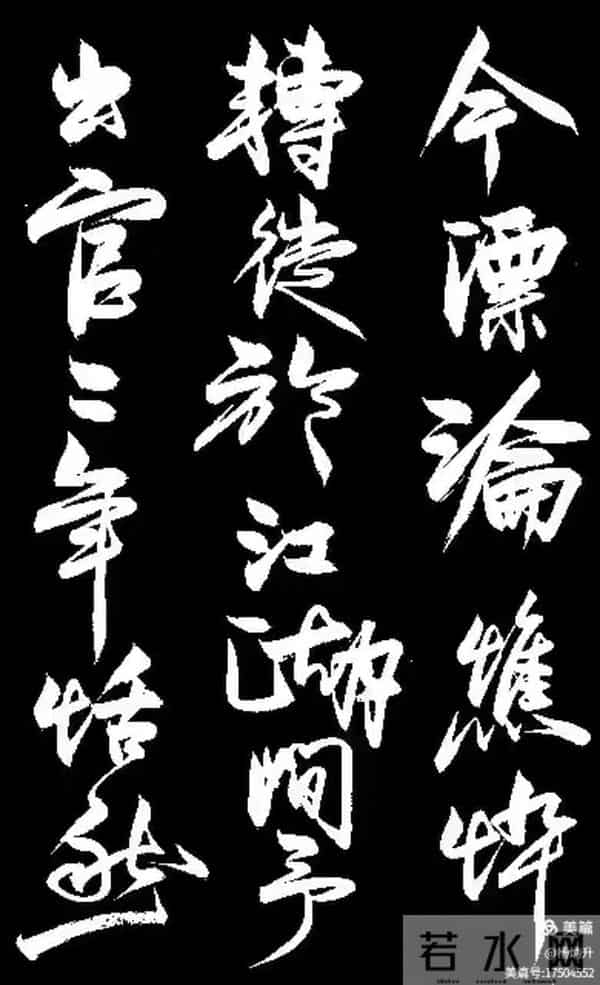 今漂淪憔悴
轉徙於江湖間予
出官二年恬然
若水网
美篇
美篇号:17504552